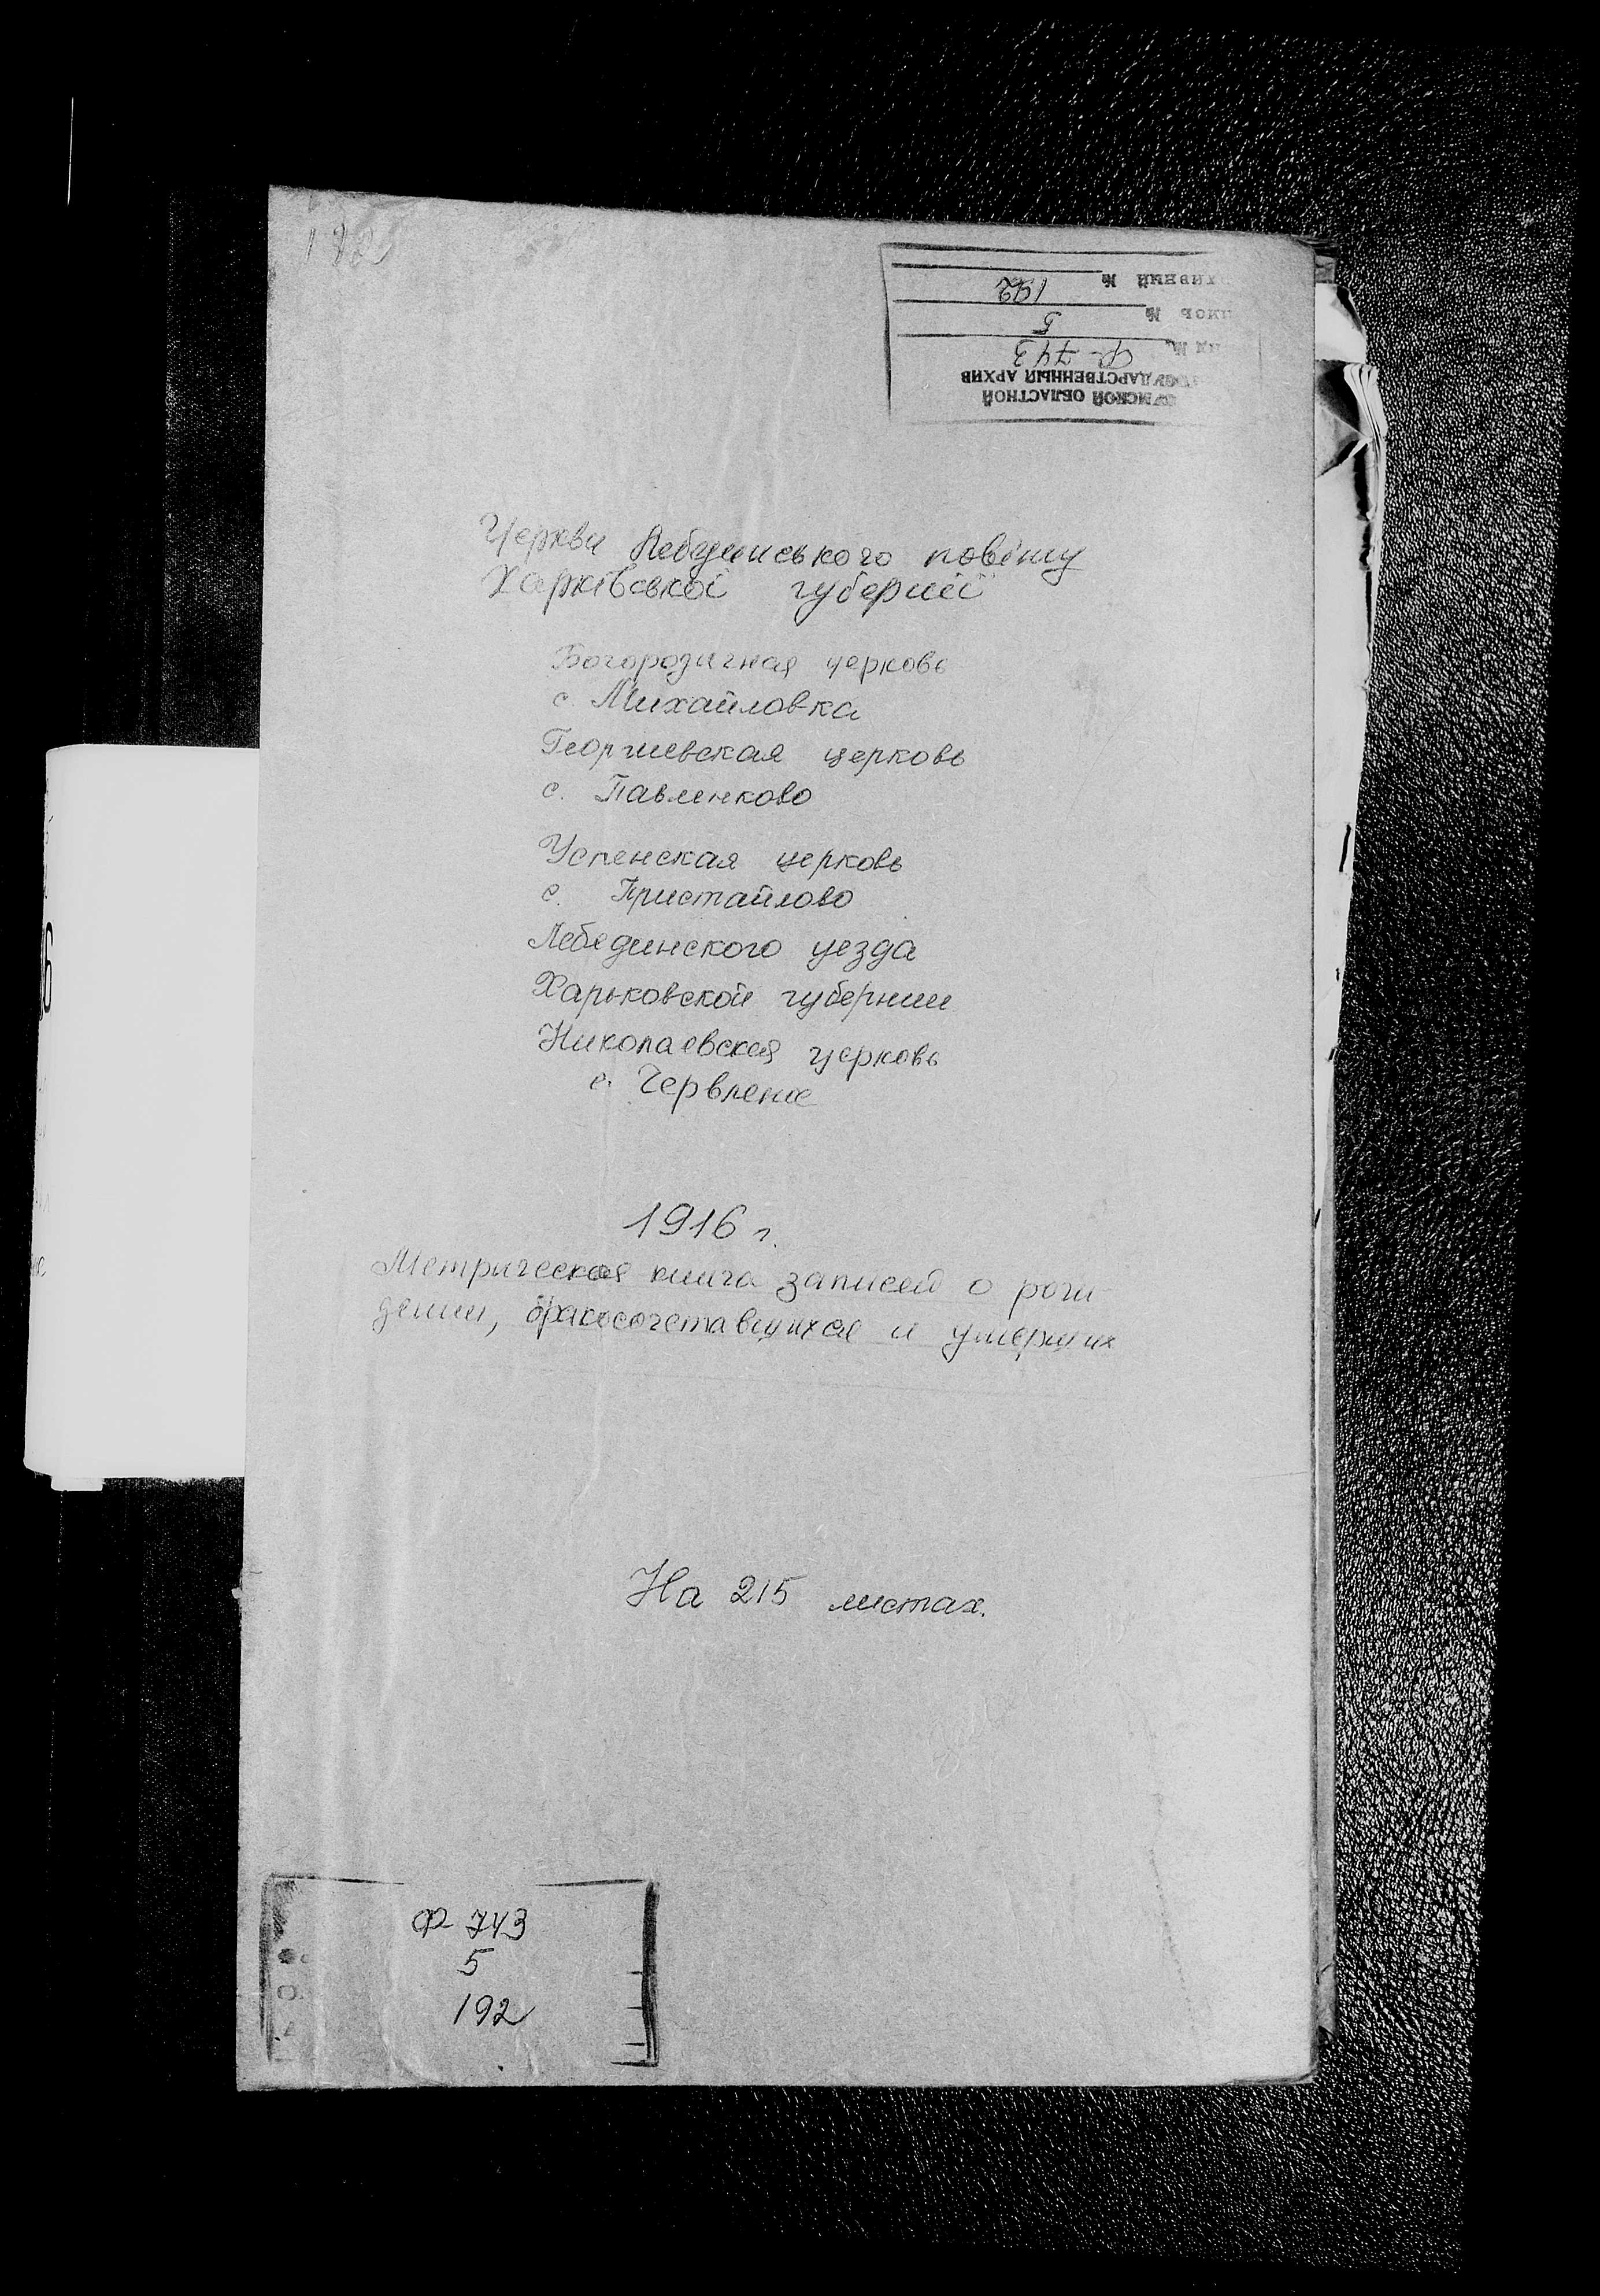 СУМСКОЙ ОБЛАСТНОЙ
ГОСУДАРСТВЕННЫЙ АРХИВ
№ ф-743
№ 5
№ 192
Церкви Лебединського повіту
Харківської губернії
Богородичная церковь
с. Михайловка
Георгиевская церковь
с. Павленково
Успенская церковь
с. Пристайлово
Лебединского уезда
Харьковской губернии
Николаевская церковь
с. Червлене
1916 г.
Метрическая книга записей о рож-
дении, бракосочетавшихся и умерших
На 215 листах.
Ф-743
5
192